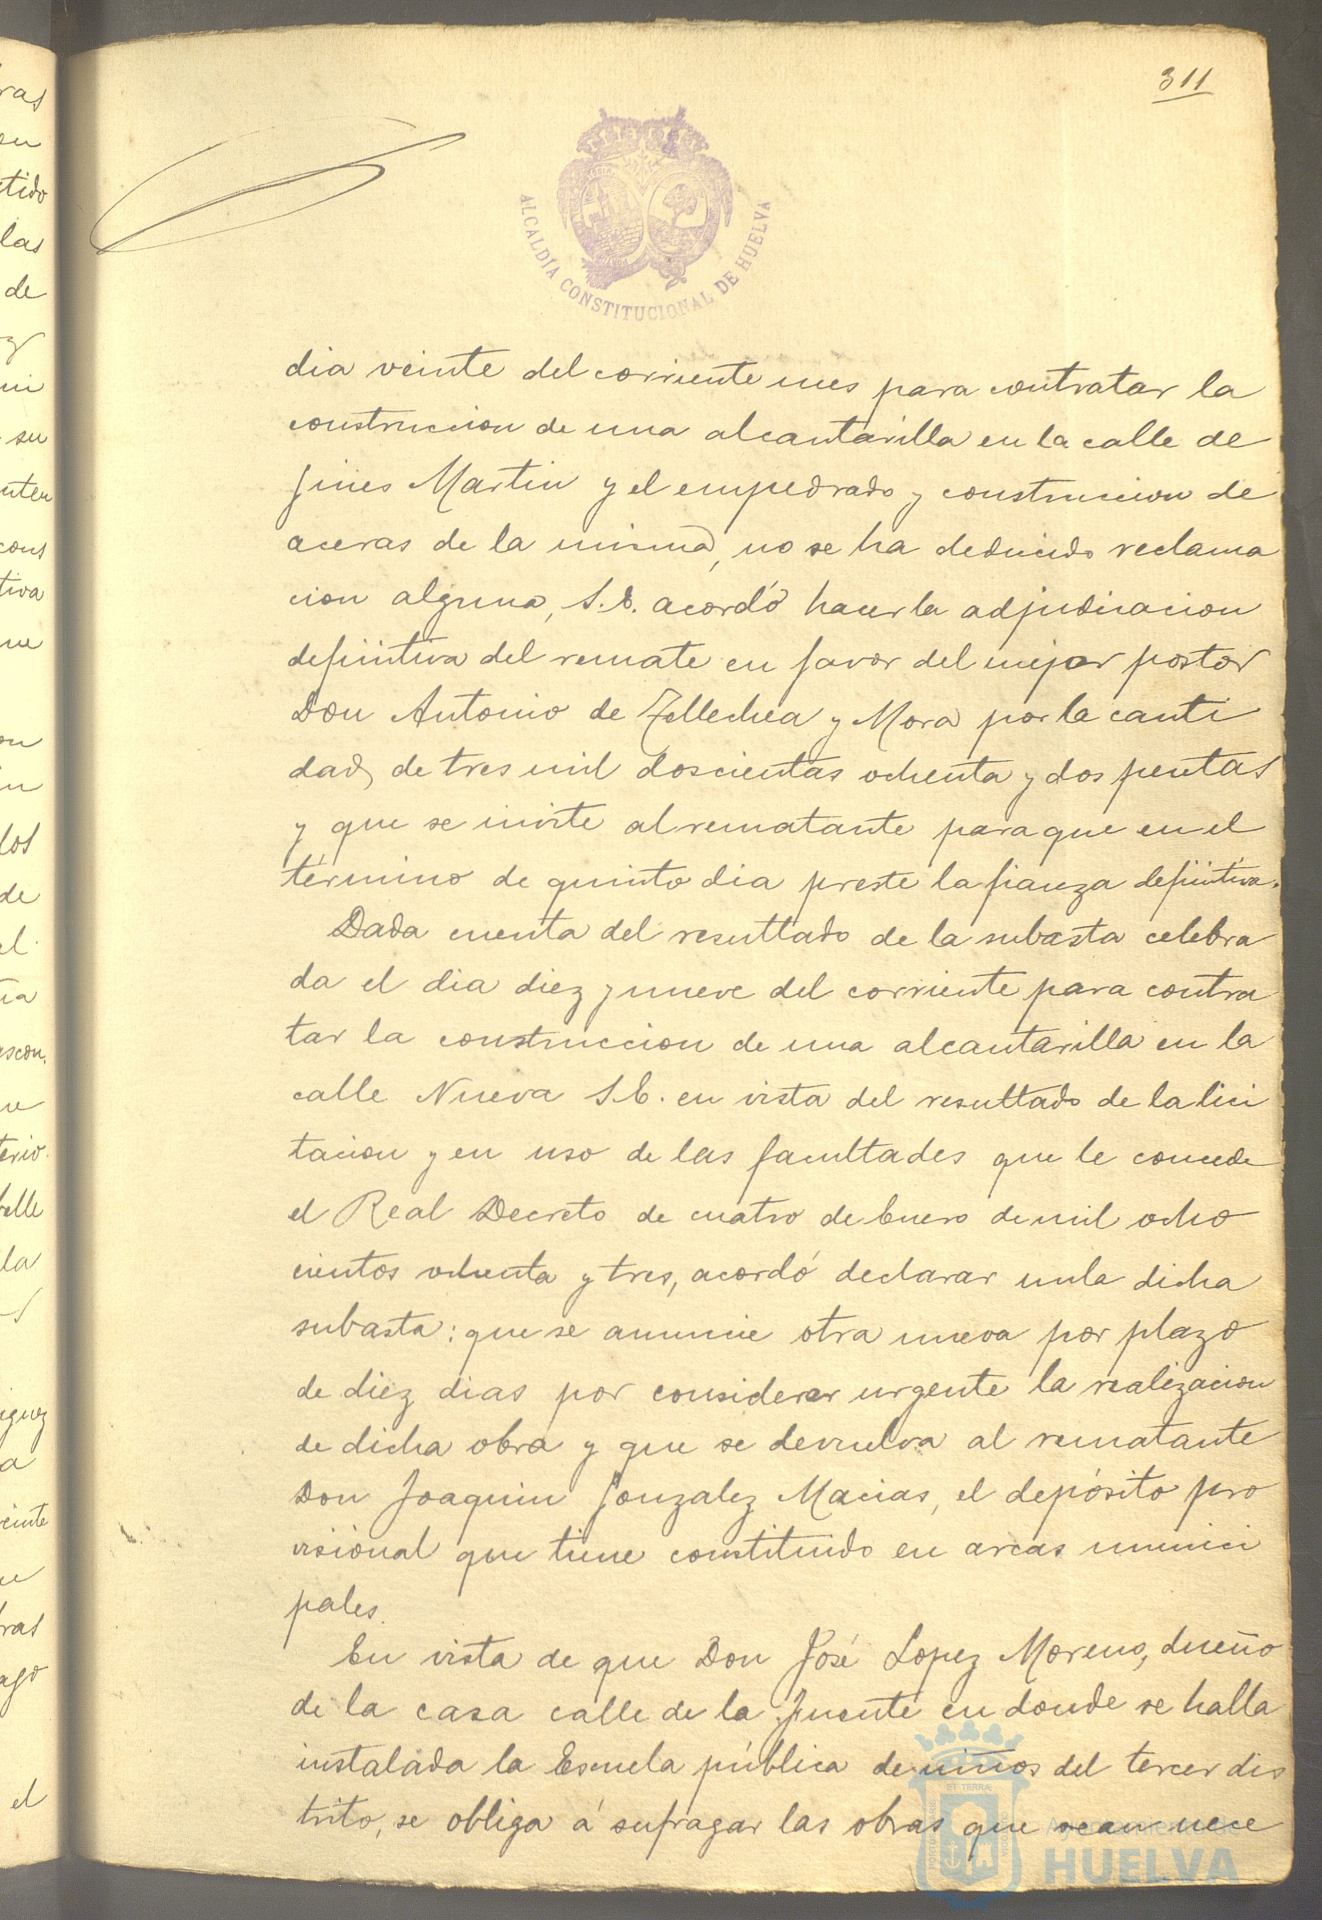 311
ALCALDÍA CONSTITUCIONAL DE HUELVA
dia veinte del corriente mes para contratar la
construccion de una alcantarilla en la calle de
Jines Martin y el empedrado y construccion de
aceras de la misma, no se ha deducido reclama
cion alguna, S.E. acordó hacer la adjudicacion
definitiva del remate en favor del mejor postor
Don Antonio de Tellechea y Mora por la canti
dad, de tres mil doscientas ochenta y dos pesetas
y que se invite al rematante para que en el
término de quinto dia preste la fianza definitiva.
Dada cuenta del resultado de la subasta celebra
da el dia diez y nueve del corriente para contra
tar la construccion de una alcantarilla en la
calle Nueva S.E. en vista del resultado de la lici
tacion y en uso de las facultades que le concede
el Real Decreto de cuatro de Enero de mil ocho
cientos ochenta y tres, acordó declarar nula dicha
subasta: que se anuncie otra nueva por plazo
de diez dias por considerar urgente la realizacion
de dicha obra y que se devuelva al rematante
Don Joaquin Gonzalez Macias, el depósito pro
visional que tiene constituido en arcas munici
pales.
En vista de que Don José Lopez Moreno, dueño
de la casa calle de la Fuente en donde se halla
instalada la Escuela pública de niños del tercer dis
trito, se obliga á sufragar las obras que sean nece
Ayuntamiento de
HUELVA